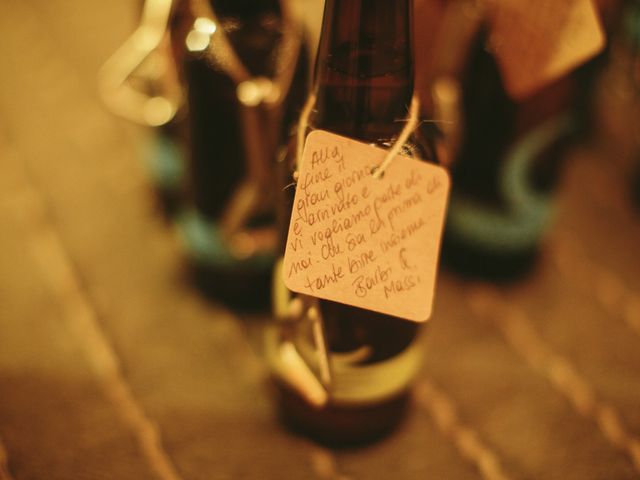 Alla
fine il
gran giorno
è arrivato e
vi vogliamo parte di
noi. Che sia la prima di
tante birre insieme.
Barbi &
Massi